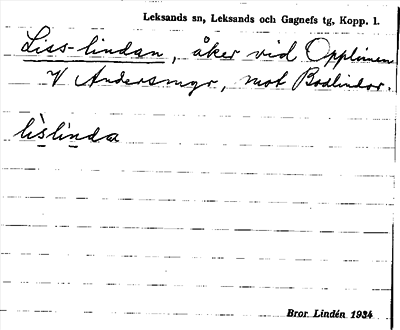 Leksands sn, Leksands och Gagnefs tg, Kopp. l.
Liss-lindan, åker vid Opplimen
V Andersmyr, mot Bodlindor.
lìslìnda
Bror Lindén 1934